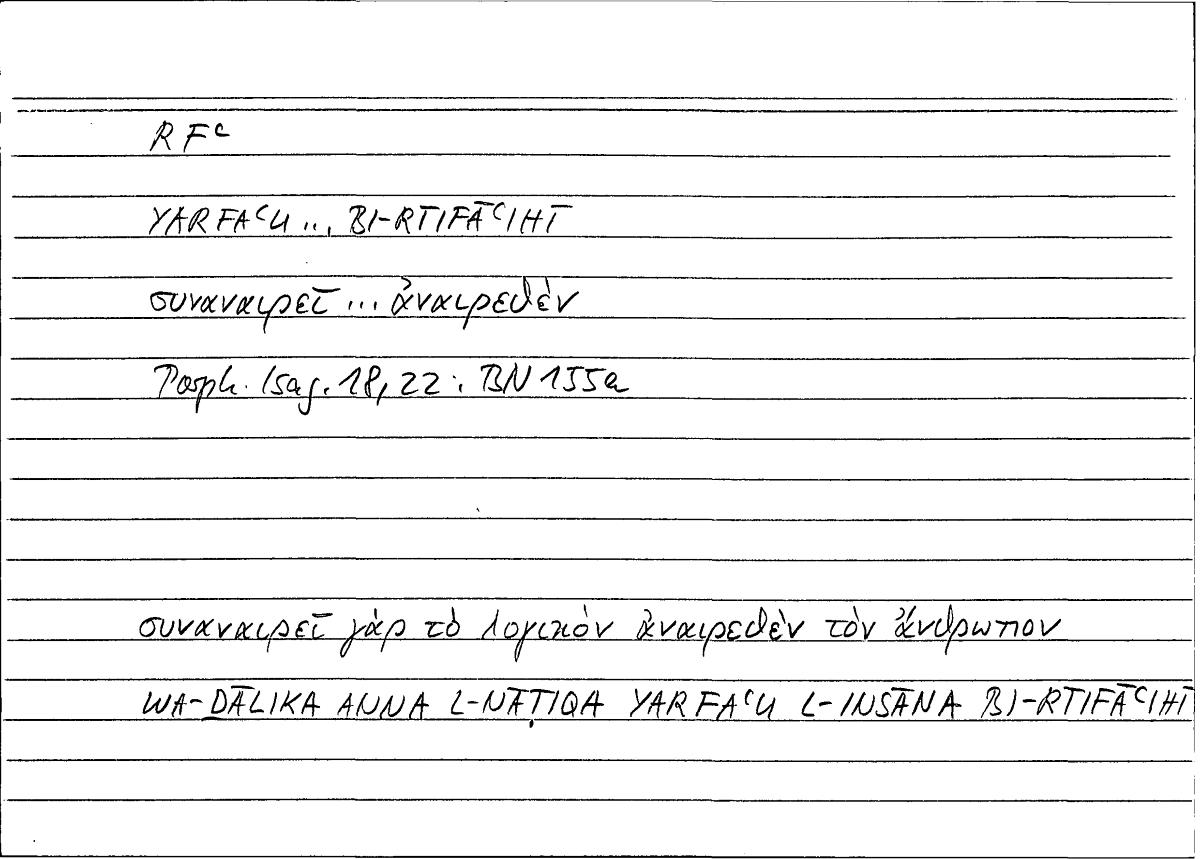 RFʿ
YARFAʿU ... BI-RTIFĀʿIHĪ
συναναιρεῖ ... ἀναιρεθὲν
Porph. Isag. 18, 22 : BN 155a
συναναιρεῖ γὰρ τὸ λογικὸν ἀναιρεθὲν τὸν ἄνθρωπον
WA-ḎĀLIKA ANNA L-NĀṬIQA YARFAʿU L-INSĀNA BI-RTIFĀʿIHĪ